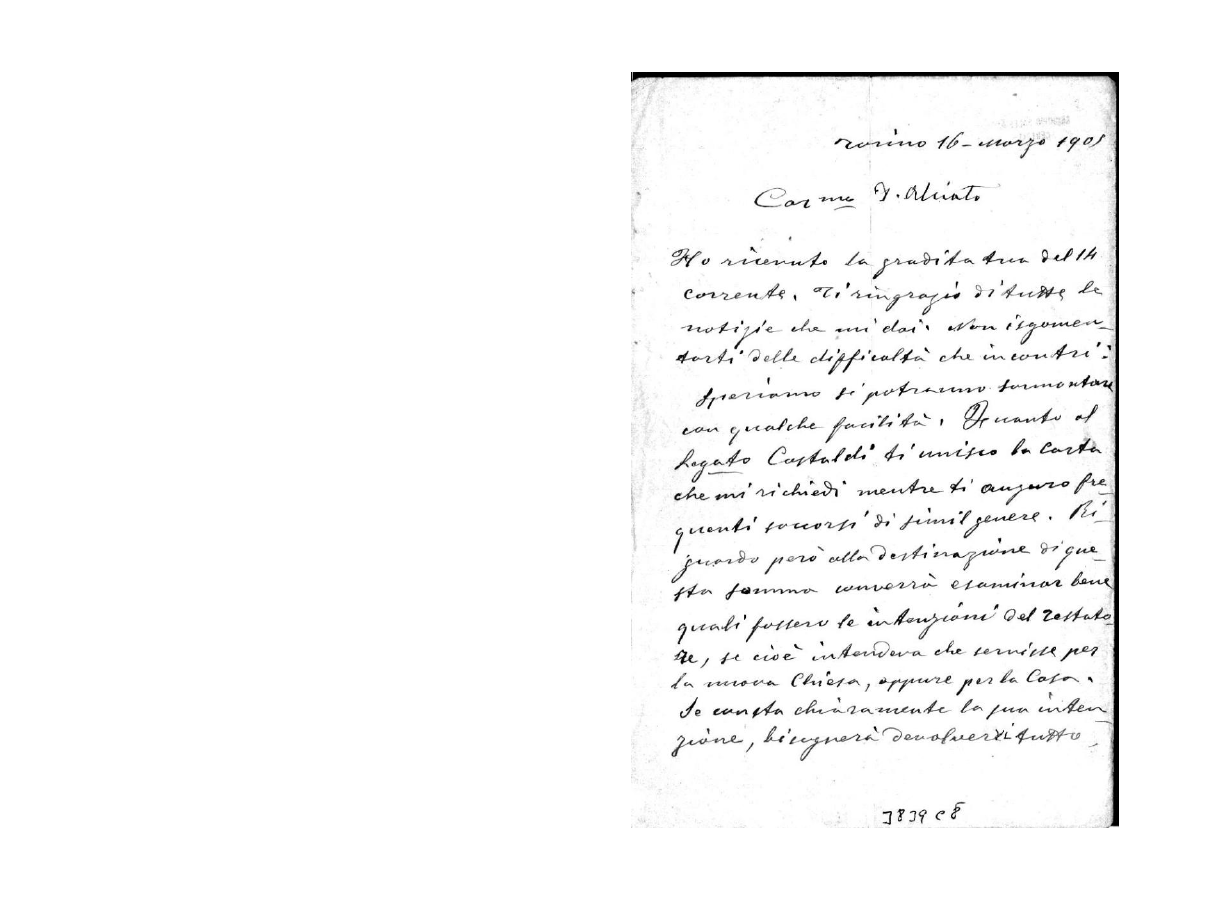 Torino 16 - Marzo 1905
Car.mo D. Alciato
Ho ricevuto la gradita tua del 14
corrente. Ti ringrazio di tutte le
notizie che mi dai. Non isgomen-
tarti delle difficoltà che incontri:
speriamo si potranno sormontare
con qualche facilità. Quanto al
Legato Castaldi ti unisco la carta
che mi richiedi mentre ti auguro fre-
quenti soccorsi di simil genere. Ri-
guardo però alla destinazione di que-
sta somma converrà esaminar bene
quali fossero le intenzioni del Testato-
re, se cioè intendeva che servisse per
la nuova Chiesa, oppure per la Casa.
Se consta chiaramente la sua inten-
zione, bisognerà devolvervi tutto
3839 C8